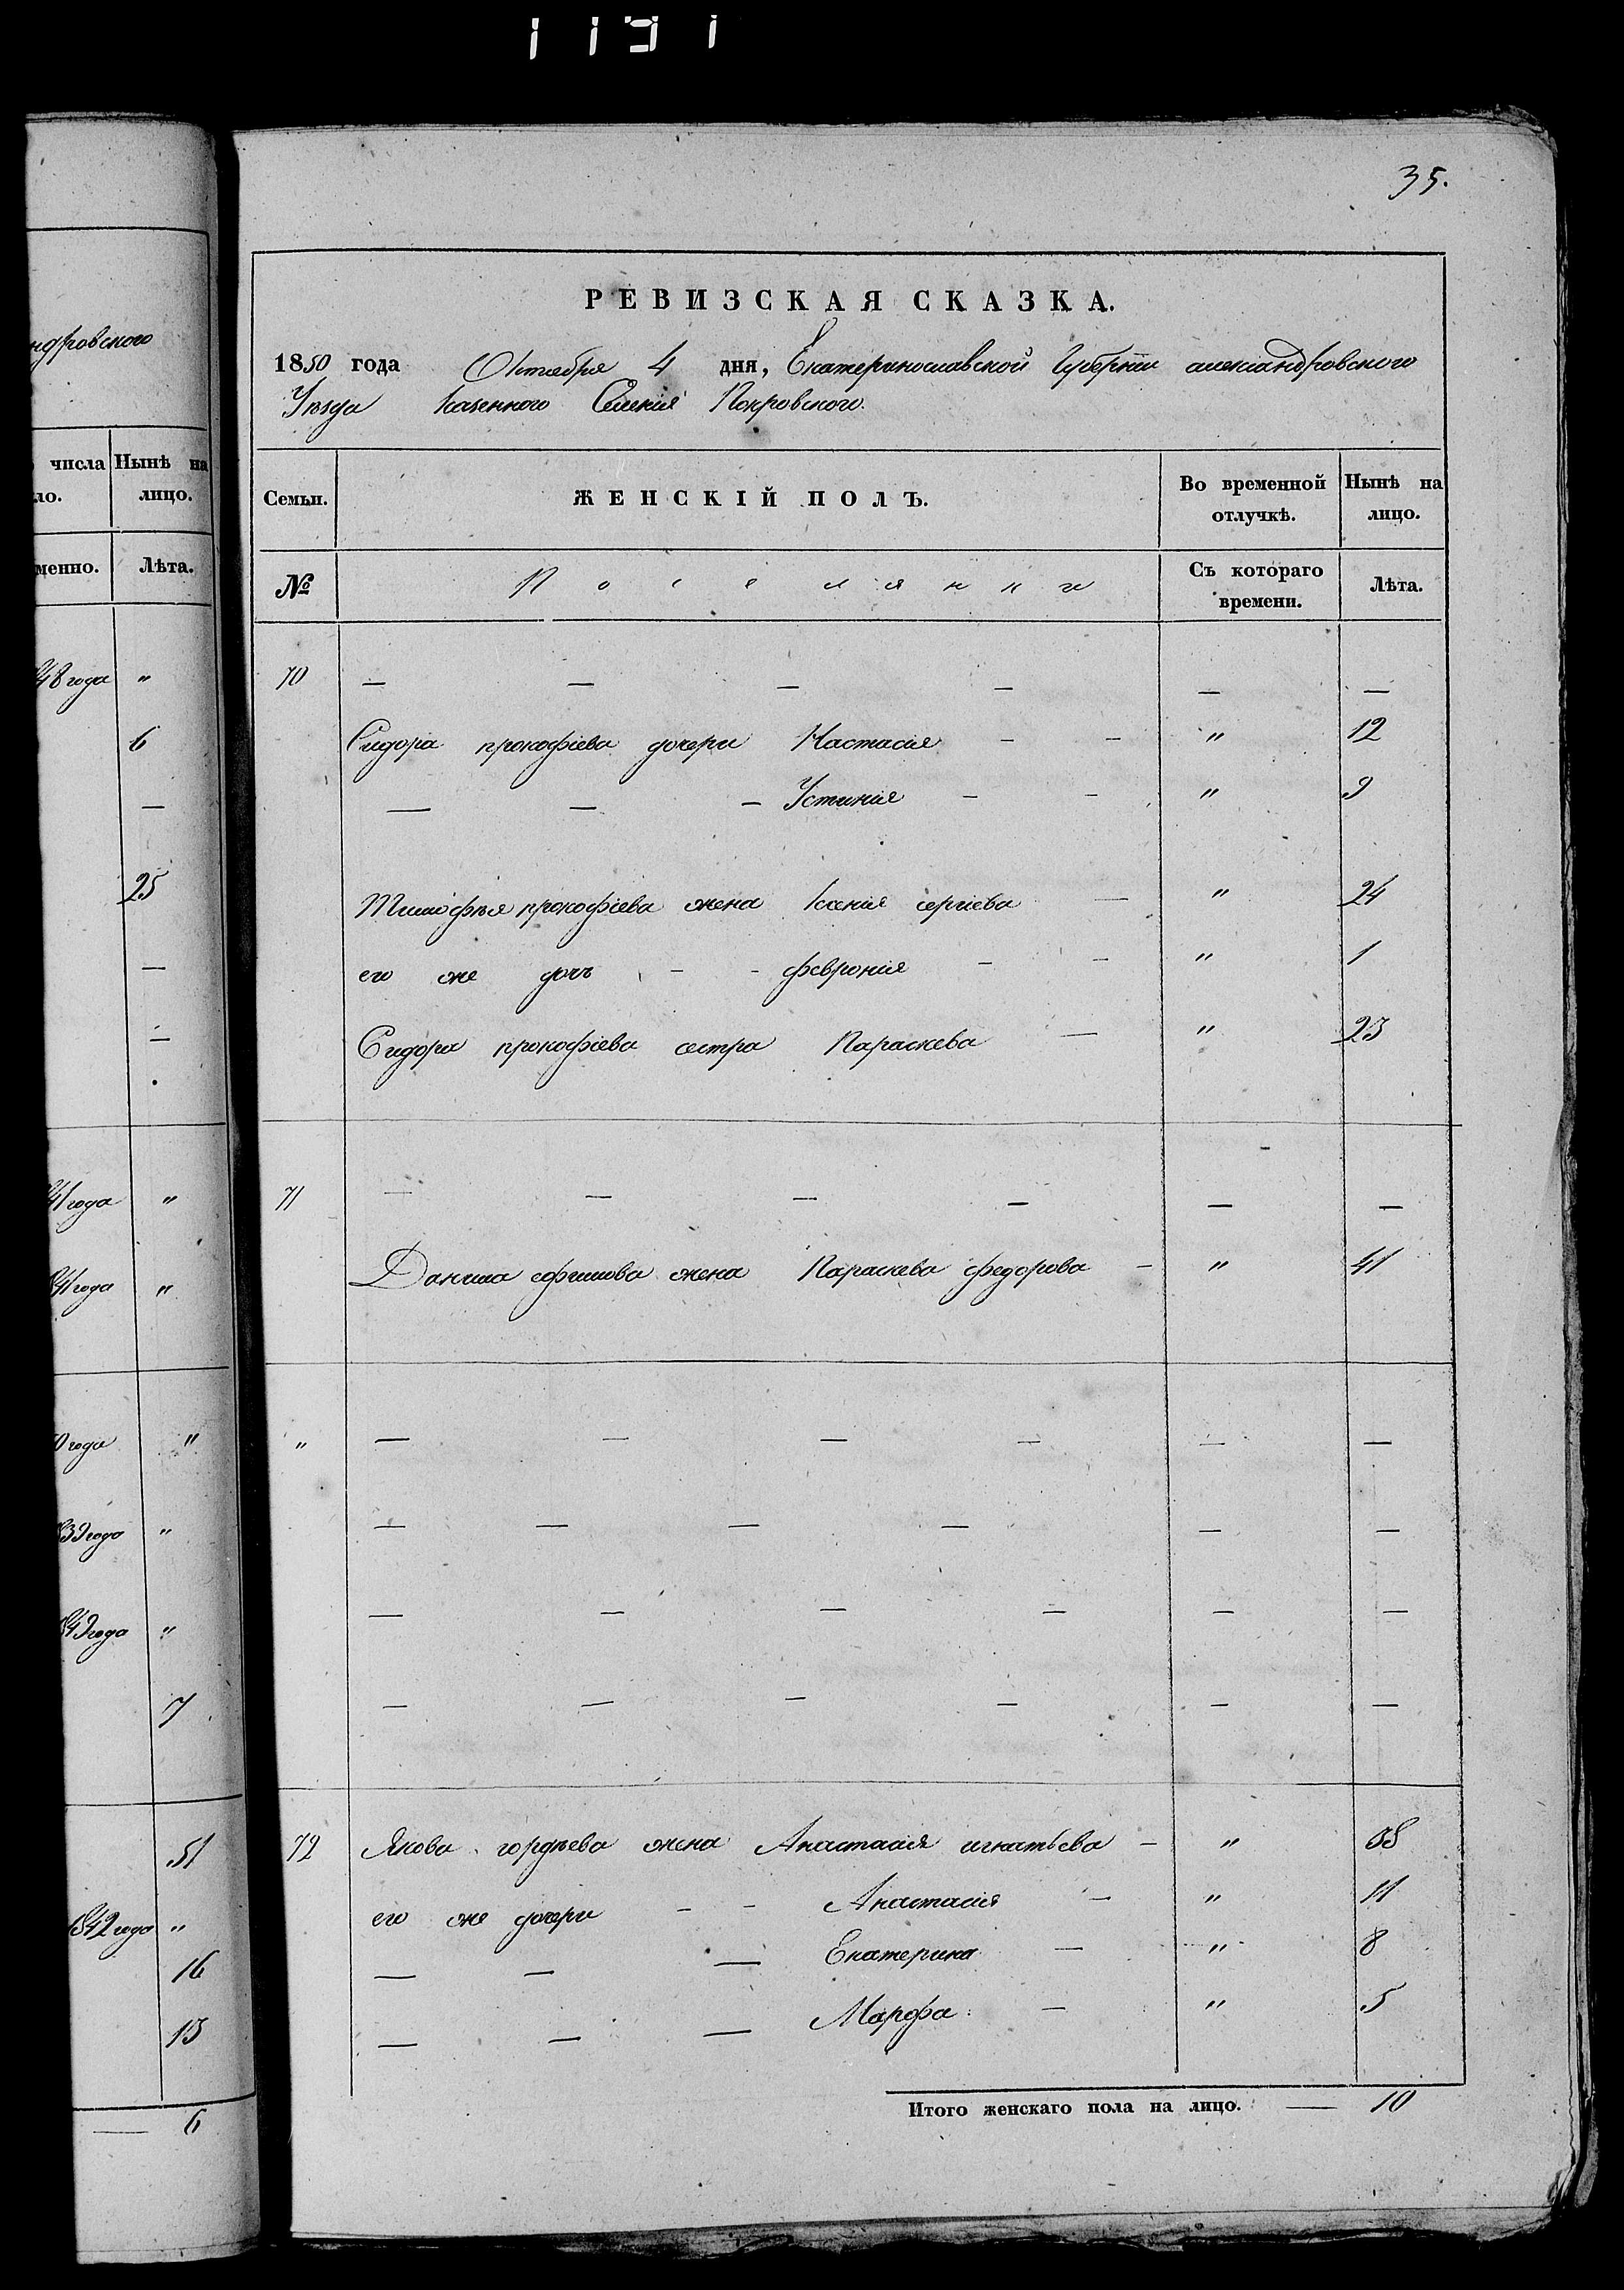 1191
ндровского
числа Нынѣ на
ло. лицо.
менно. Лѣта.
48 года "
6
—
25
—
—
41 года "
41 года "
0 года "
39 года "
849 года "
7
51
1842 года "
16
13
— 6
35.
РЕВИЗСКАЯ СКАЗКА.
1850 года Октября 4 дня, Екатеринославской Губернии александровского
Уѣзда казенного Селенія Покровского.
Семьи. ЖЕНСКІЙ ПОЛЪ. Во временной отлучкѣ. Нынѣ на лицо.
№ Поселянки Съ котораго времени. Лѣта.
70 — — — — — —
Сидора прокофіева дочери Настасія - - " 12
— — - Устинія - - " 9
Тимофѣя прокофіева жена Ксенія сергіева — " 24
его же дочь - - февронія - - " 1
Сидора прокофіева сестра Параскева — " 23
71 — — — — — —
Данила ефимова жена Параскева федорова - " 41
" — — — — — —
— — — — — —
— — — — — —
— — — — — —
72 Якова гордѣева жена Анастасія игнатьева - " 38
его же дочери - - Анастасія - " 11
— — — Екатерина — " 8
— — — Марфа — " 5
Итого женскаго пола на лицо. — 10